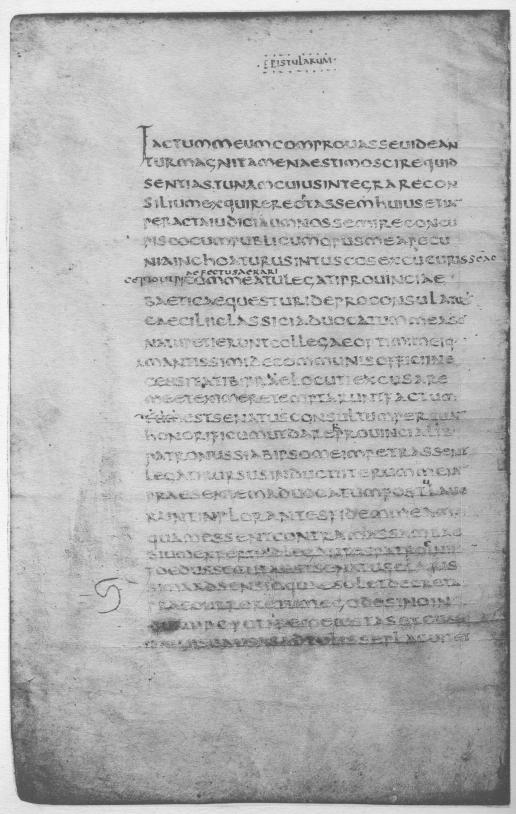 ·EPISTULARUM·
FACTUMMEUMCOMPROUASSEUIDEAN
TURMAGNITAMENAESTIMOSCIREQUID
SENTIASTUNAMCUIUSINTEGRARECON
SILIUMEXQUIRERE OPTASSEMHUIUSETIA
PERACTAIUDICIUMNOSSEMIRECONCU
PISCOCUMPUBLICUMOPUSMEAPECU
NIAINCHOATURUSINTUSCOSEXCUCURISSEMAC
AEFECTUSAERARI
CEPTOUTPRCOMMEATULEGATIPROUINCIAE
BAETICAEQUESTURIDEPROCONSULATU
CAECILIICLASSICIADUOCATUMMEASE
NATUPETIERUNTCOLLEGAEOPTIMIMEIQ·
AMANTISSIMIDECOMMUNISOFFICIINE
CESSITATIBPRAELOCUTIEXCUSARE
MEETEXIMERETEMPTARUNTFACTUM
ESTSENATUSCONSULTUMPERQUAM
HONORIFICUMUTDARERPROUINCIALIB
PATRONUSSIABIPSOMEIMPETRASSENT
LEGATIRURSUSINDUCTIITERUMMEIAM
PRAESENTEMADUOCATUMPOSTULAUE
RUNTINPLORANTESFIDEMMEAM
QUAMESSENTCONTRAMASSAMBAE
BIUMEXPERTIADLEGANTESPATROCINII
FOEDUSSECUTAESTSENATUSCLARIS
SIMAADSENSIOQUAESOLETDECRETA
PRAECURRERETUMEGODESINOIN